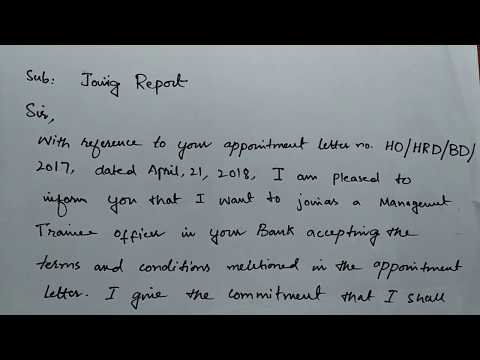 Sub: Joinig Report
Sir,
With reference to your appointment letter no. HO/HRD/BD/
2017, dated April, 21, 2018, I am pleased to
inform you that I want to join as a Managemet
Trainee officer in your Bank accepting the
terms and conditions metioned in the appointment
letter. I give the commitment that I shall